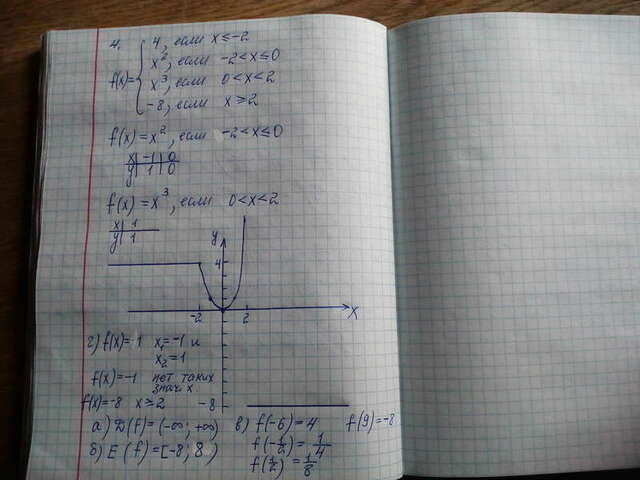 4.
f(x)=
4, если x≤-2
x², если -2<x≤0
x³, если 0<x<2
-8, если x≥2
f(x)=x², если -2<x≤0
x | -1 | 0
y | 1 | 0
f(x)=x³, если 0<x<2
x | 1
y | 1
y
4
-2 2 x
г) f(x)=1 x₁=-1 и
x₂=1
f(x)=-1 нет таких
знач. x
f(x)=-8 x≥2 -8
а) D(f)=(-∞; +∞) в) f(-6)=4 f(9)=-8
б) E(f)=[-8; 8) f(-1/2)=1/4
f(1/2)=1/8